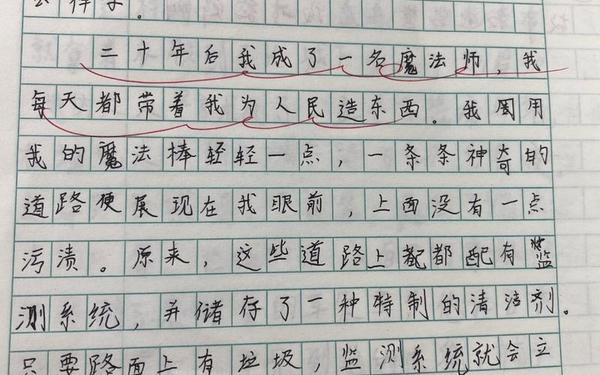 二十年后我成了一名魔法师,我
每天都带着我为人民造东西。我周用
我的魔法棒轻轻一点,一条条神奇的
道路便展现在我眼前,上面没有一点
污渍。原来,这些道路上都配有监
测系统,并储存了一种特制的清洁剂。
只要路面上有垃圾,监测系统就会立